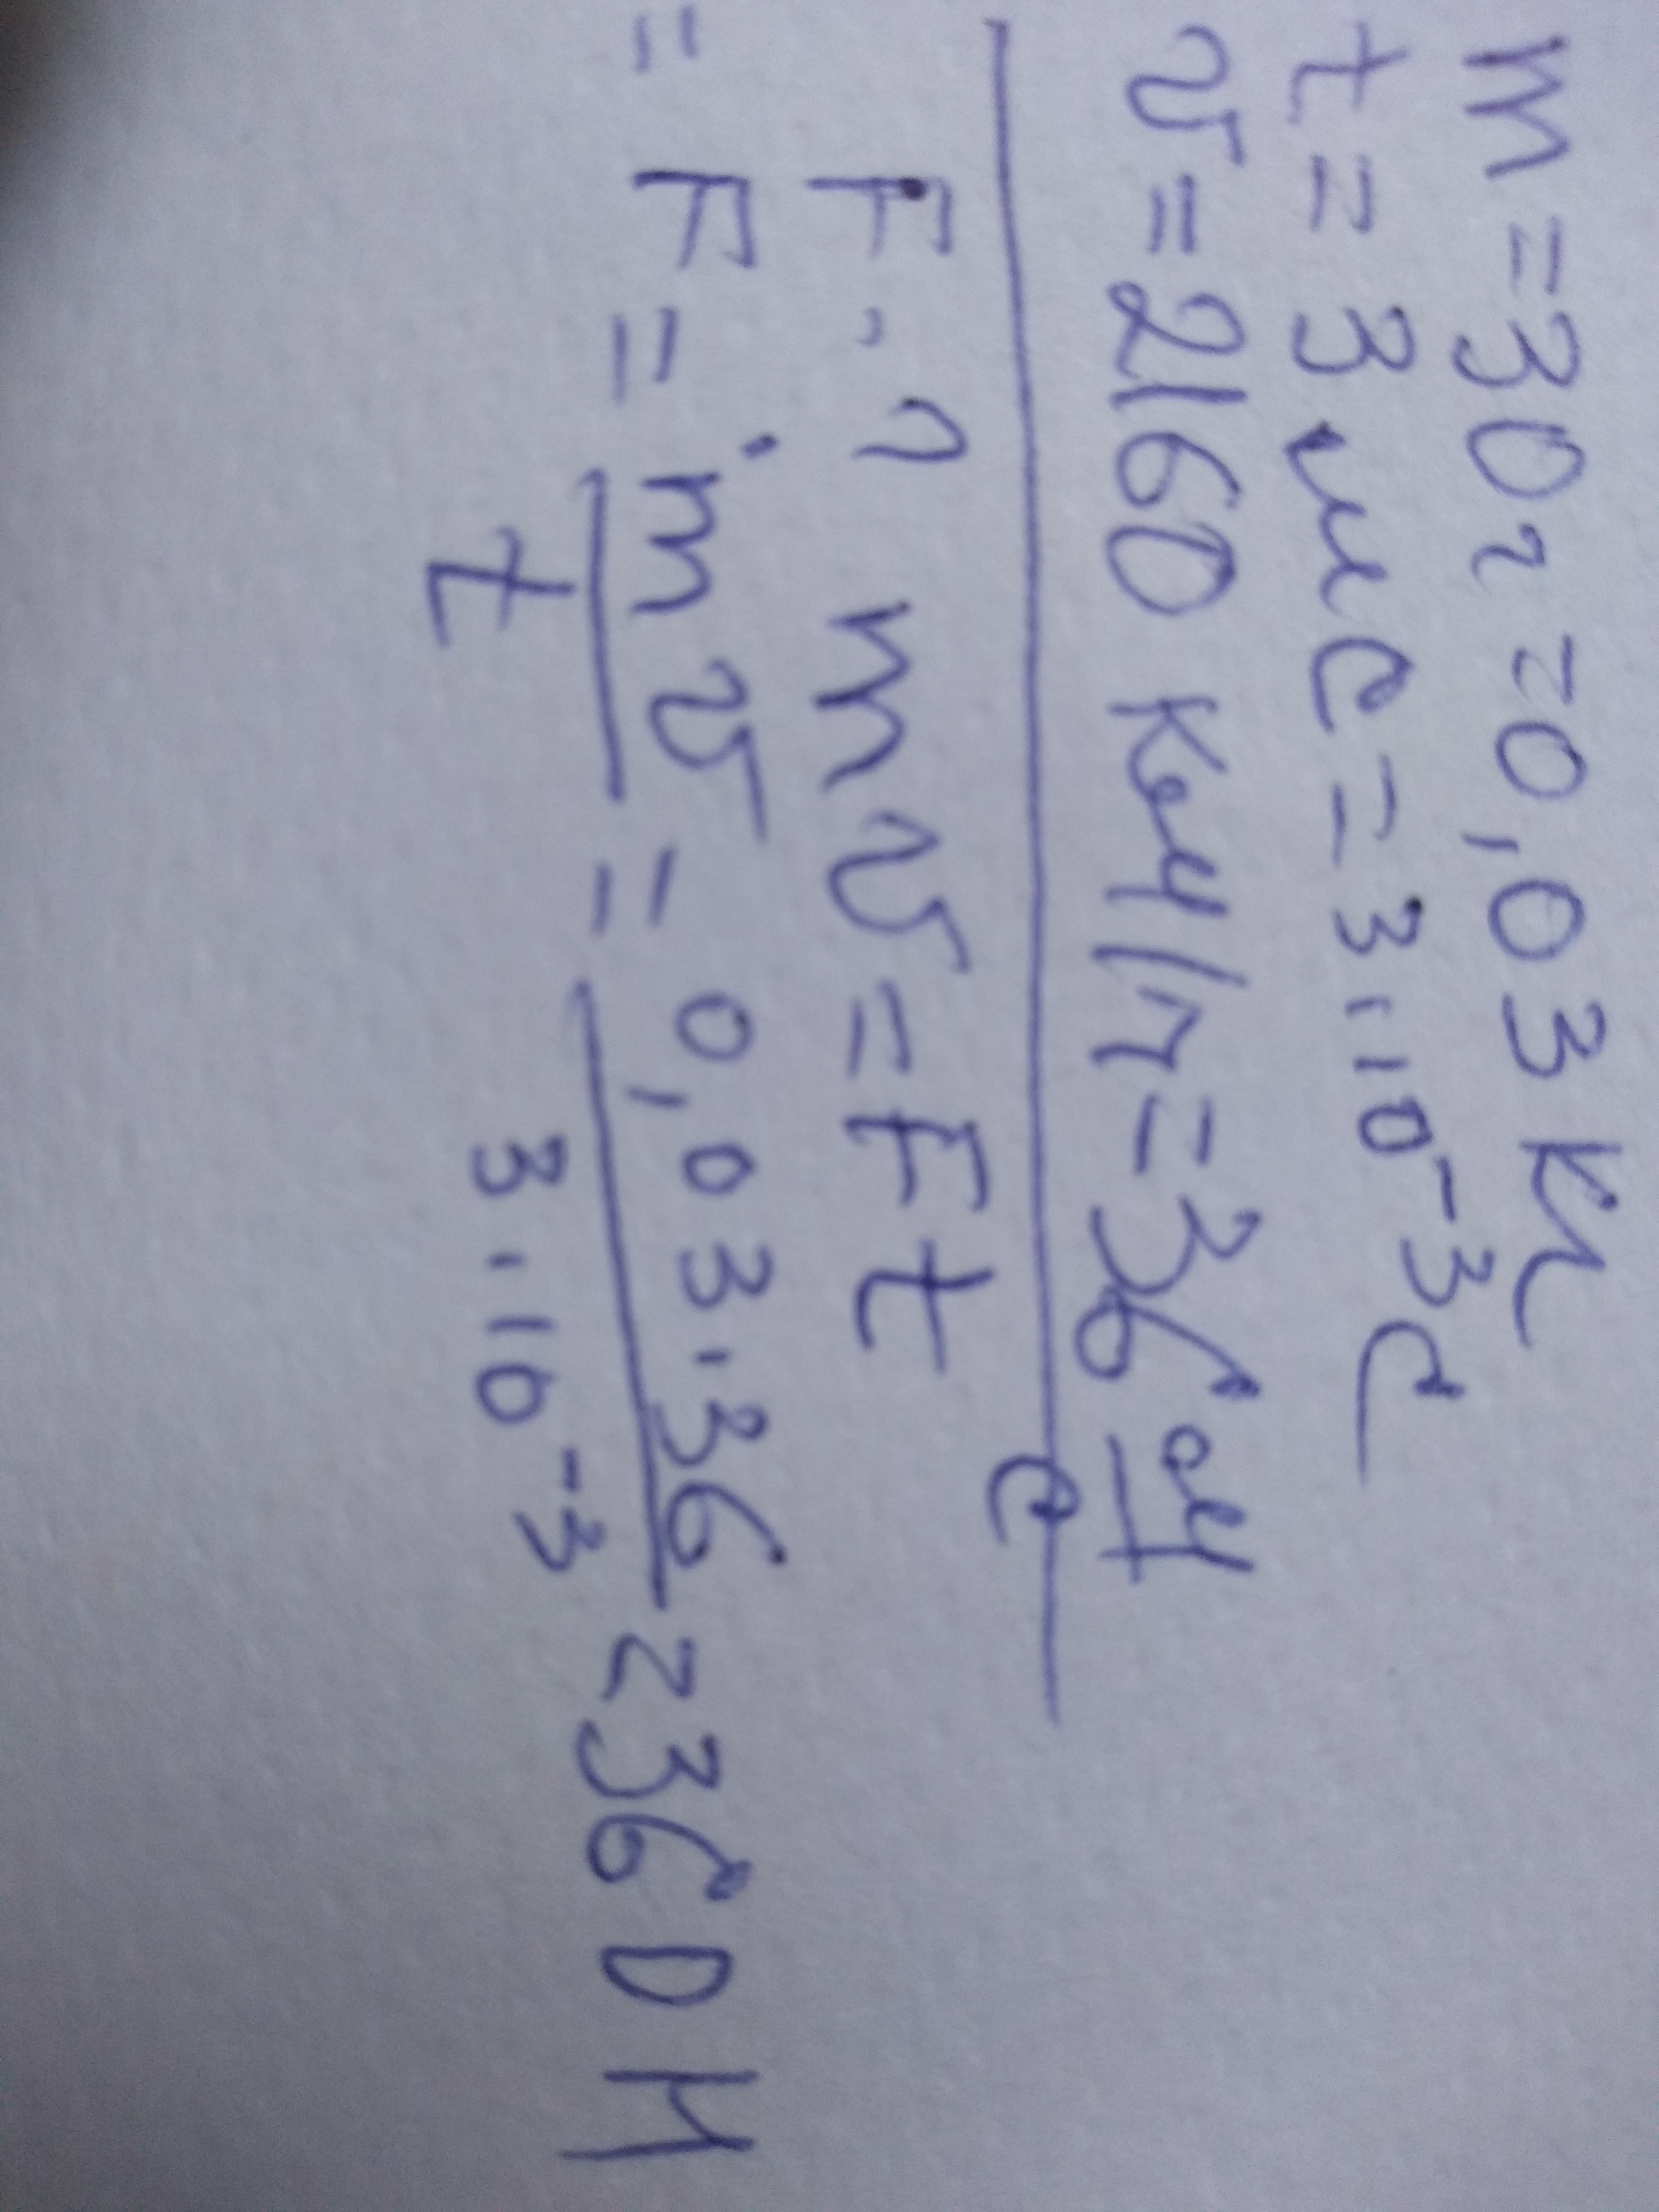 m = 30 г = 0,03 кг
t = 3 мс = 3·10⁻³ с
v = 2160 км/ч = 36 м/с
F - ? mv = Ft
= F = mv/t = 0,03·36/3·10⁻³ = 360 Н